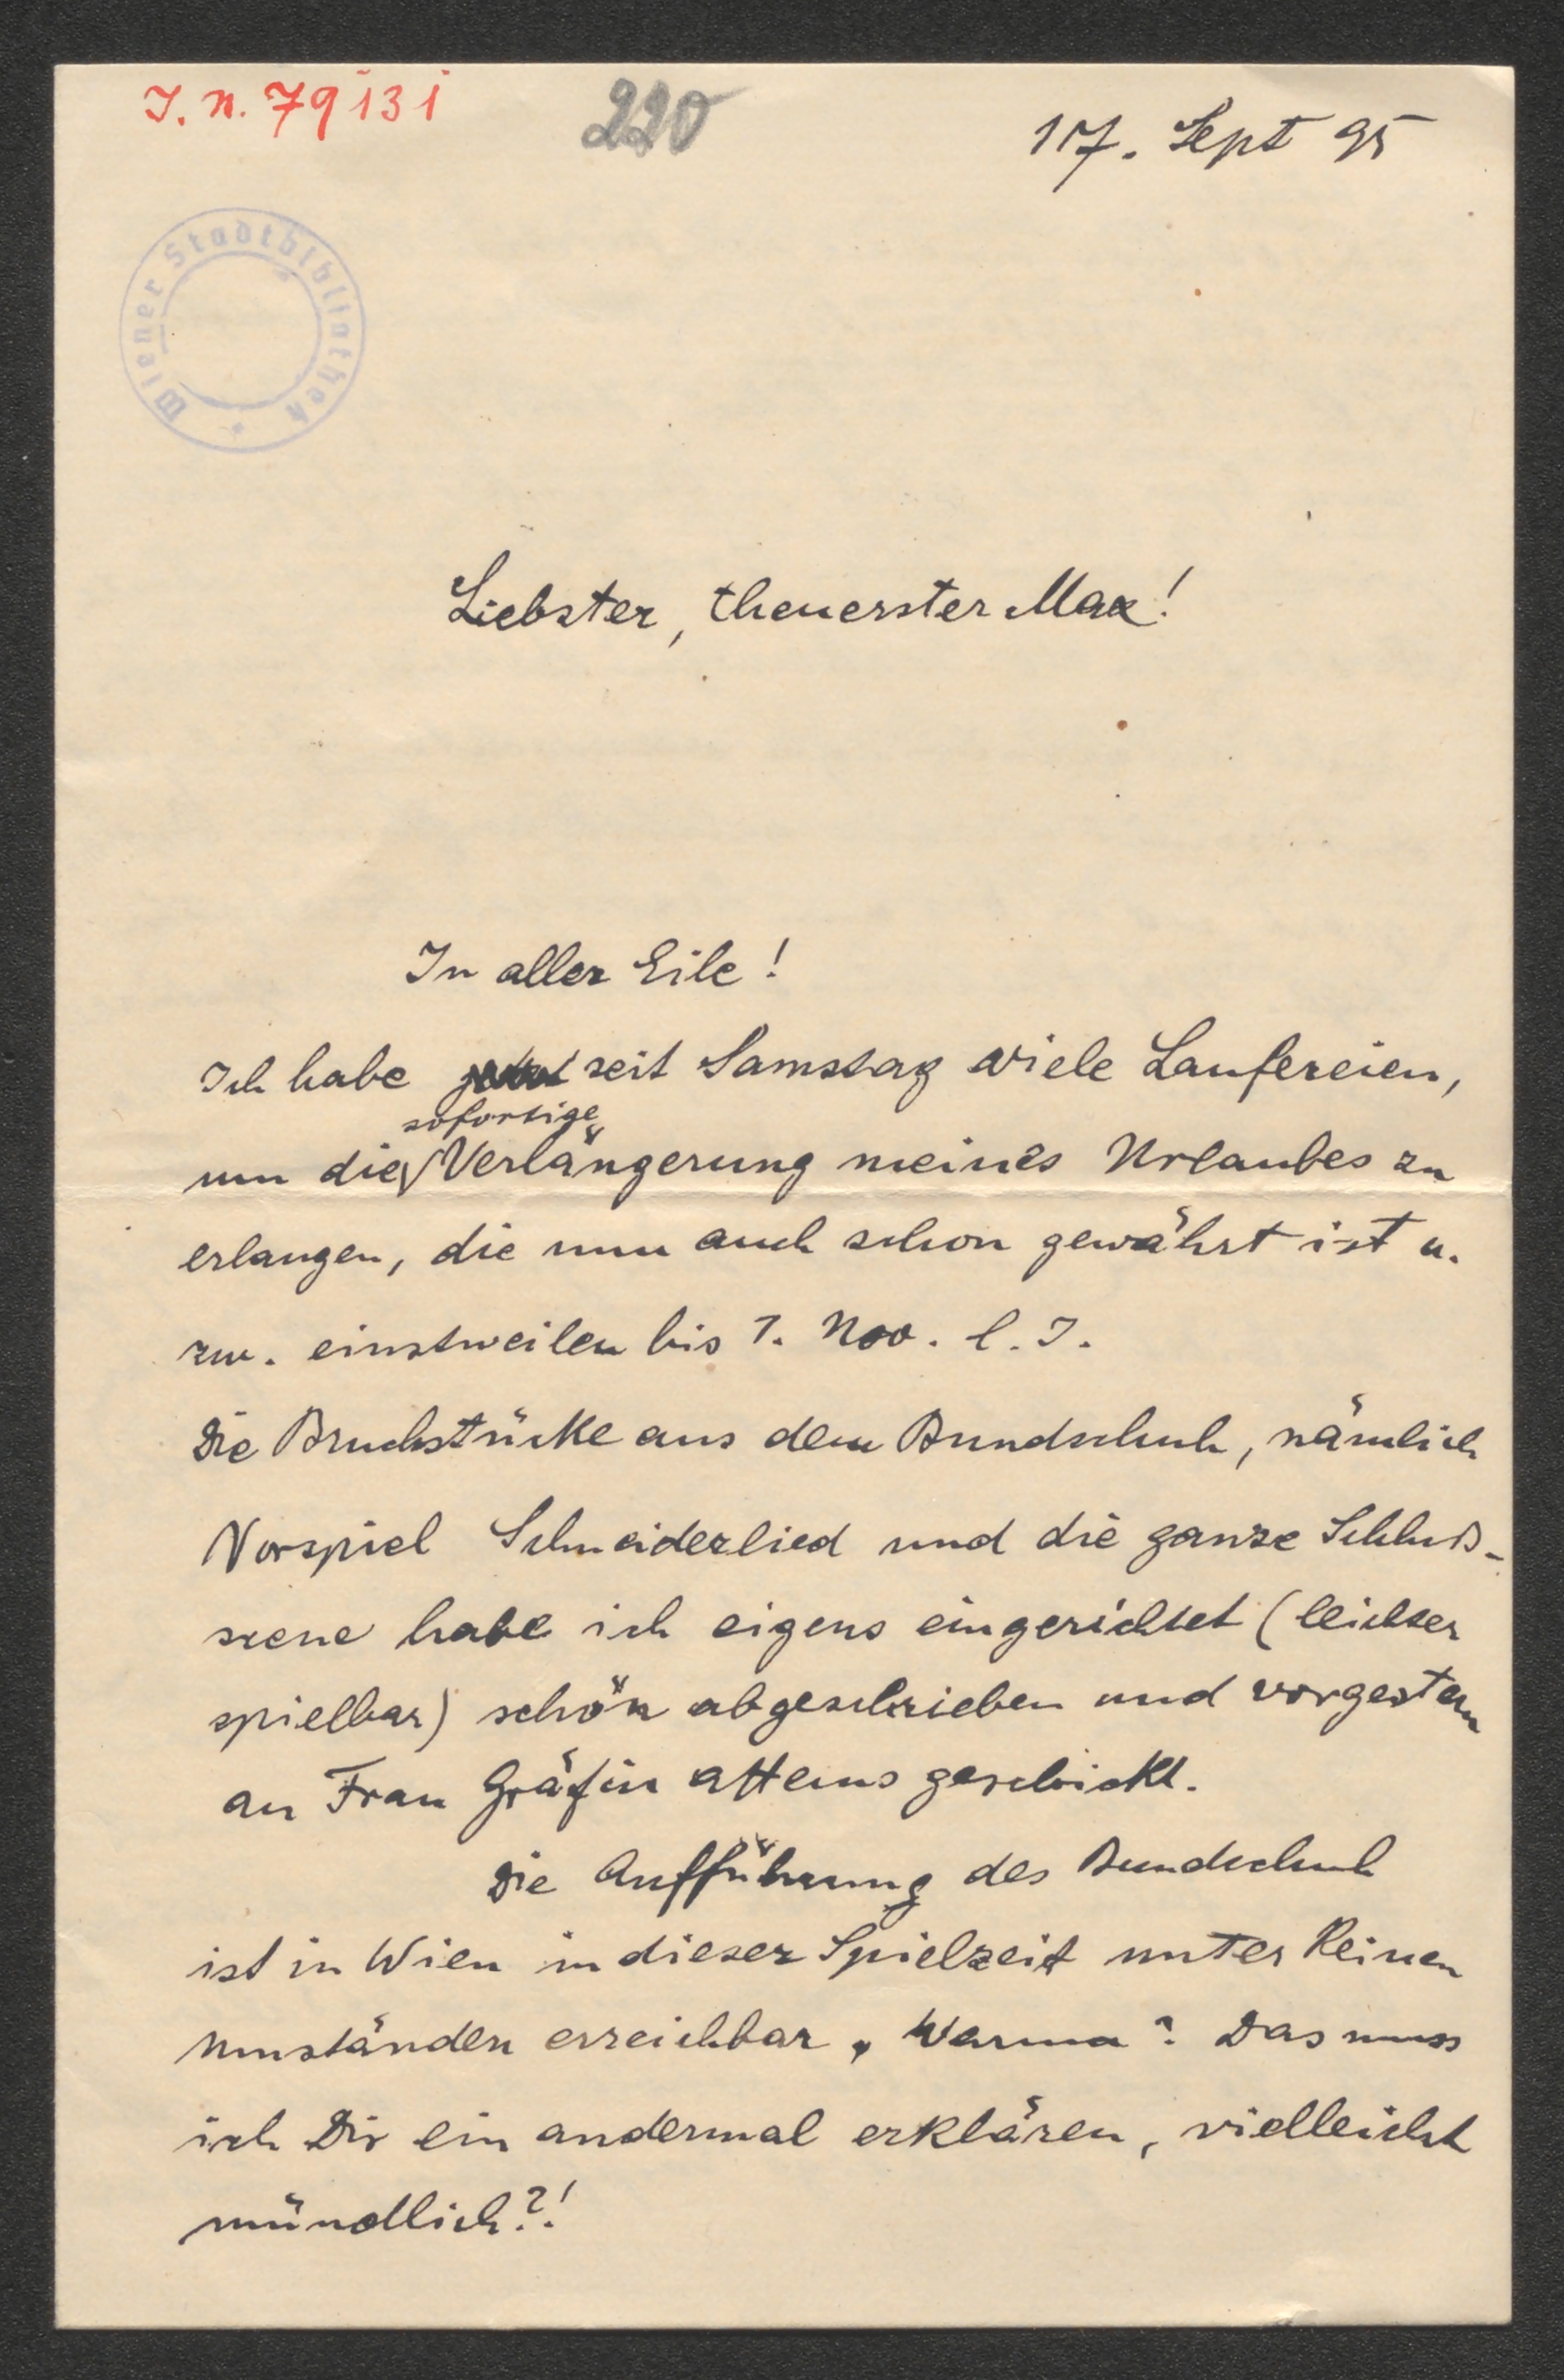 I. N. 79131
220
17. Sept 95
Wiener Stadtbibliothek
Liebster, theuerster Max!
In aller Eile!
Ich habe seit Samstag viele Laufereien,
sofortige
um die Verlängerung meines Urlaubes zu
erlangen, die nun auch schon gewährt ist u.
zw. einstweilen bis 1. Nov. l. J.
Die Bruchstücke aus dem Bundschuh, nämlich
Vorspiel Schneiderlied und die ganze Schluß-
szene habe ich eigens eingerichtet (leichter
spielbar) schön abgeschrieben und vorgestern
an Frau Gräfin Attems geschickt.
Die Aufführung des Bundschuh
ist in Wien in dieser Spielzeit unter keinen
Umständen erreichbar. Warum? Das muss
ich Dir ein andermal erklären, vielleicht
mündlich?!